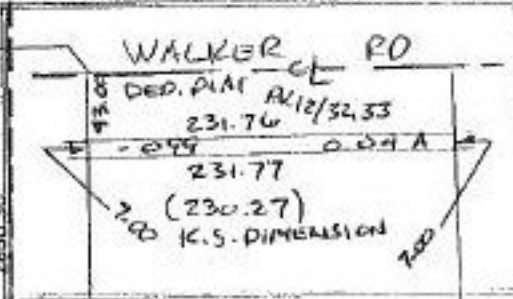 WALKER ℄ RD
DED. PLAT PL12/32,33
231.76
- 099 0.04 A
231.77
(230.27)
K.S. DIMENSION
7.00
7.00